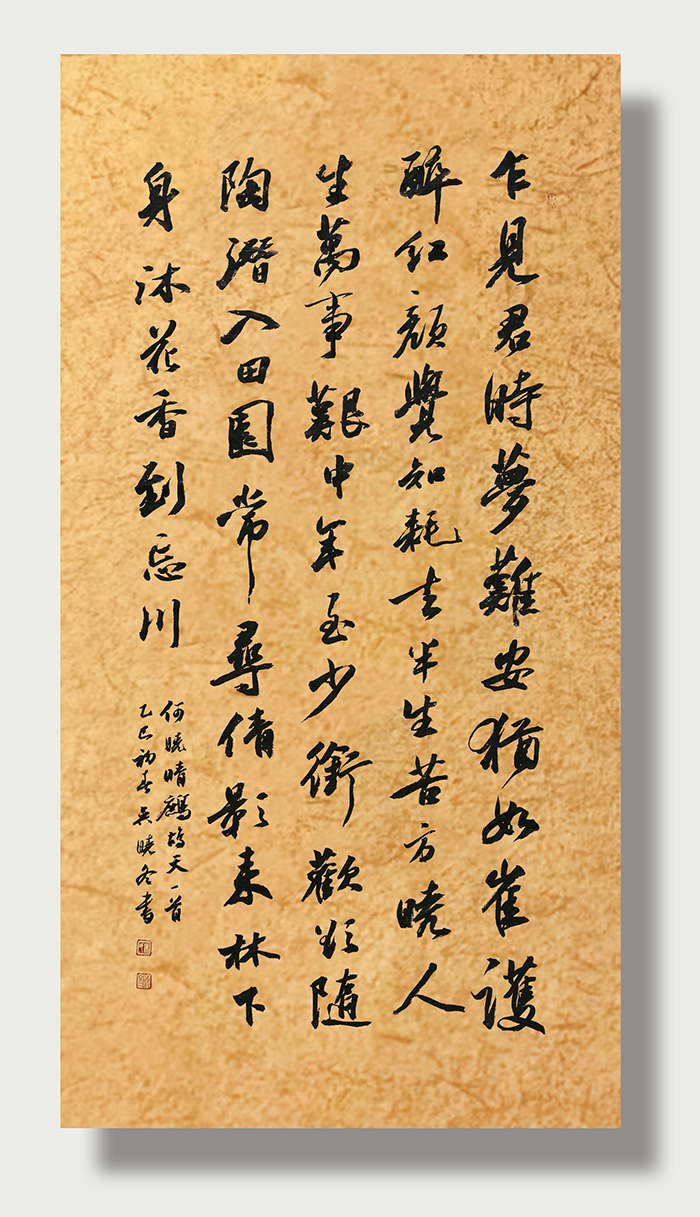 乍見君時夢難安猶如崔護
醉紅顏覺知耗去半生苦方曉人
生萬事艱中年至少銜歡於隨
陶潛入田園常尋倩影來林下
身沐花香到忘川
何曉晴鷓鴣天一首
乙巳初春吳曉冬書